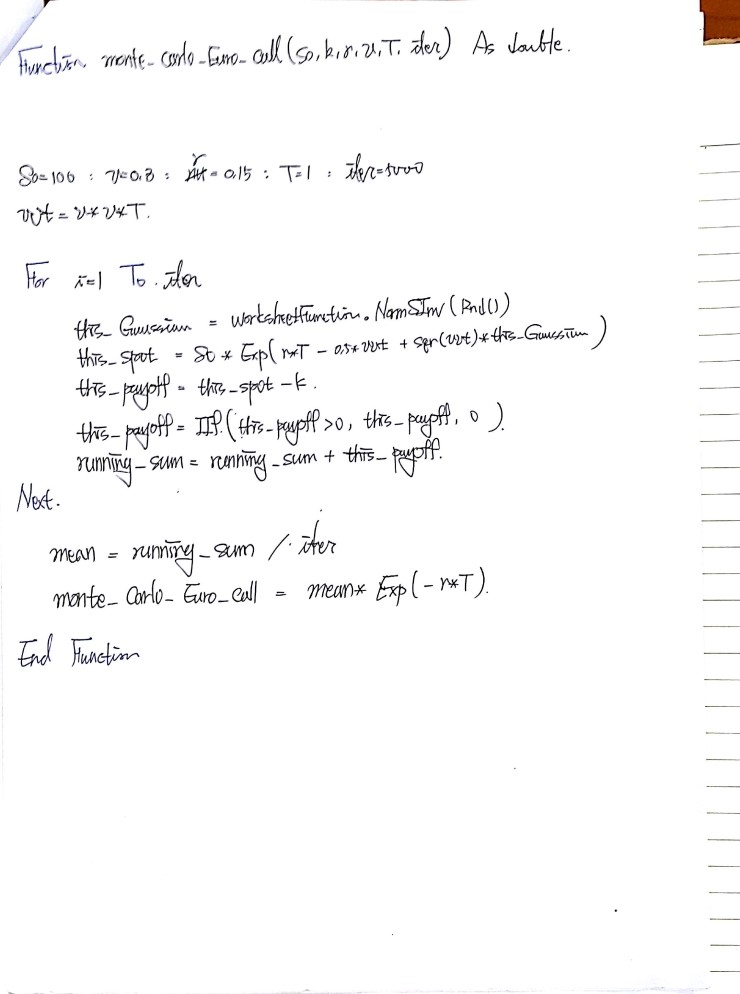 Function monte_carlo_Euro_call (So, k, r, v, T, iter) As double.
So=100 : v=0.3 : r = 0.15 : T=1 : iter=5000
vvt = v*v*T.
For i=1 To iter
this_Gaussian = WorksheetFunction.NormSInv(Rnd())
this_spot = St * Exp(r*T - 0.5*vvt + sqr(vvt)*this_Gaussian)
this_payoff = this_spot - k.
this_payoff = IIf(this_payoff>0, this_payoff, 0).
running_sum = running_sum + this_payoff.
Next.
mean = running_sum / iter
monte_Carlo_Euro_call = mean* Exp(-r*T).
End Function